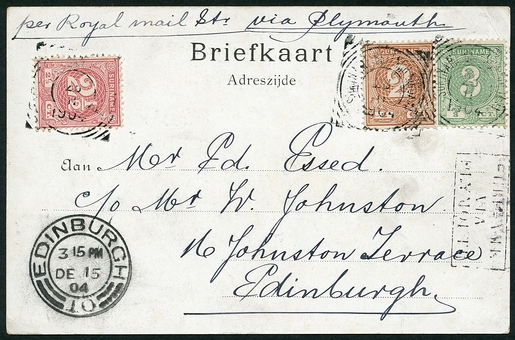 per Royal mail Str via Plymouth
Briefkaart
Adreszijde
SURINAME
2
3
Aan Mr Ed. Essed.
c/o Mr W. Johnston
Johnston Terrace
Edinburgh.
EDINBURGH
3 15 PM
DE 15
04
VIA
PLYMOUTH